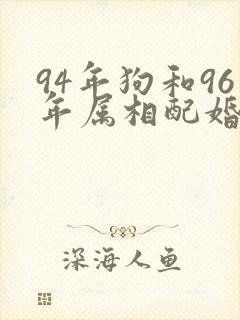 94年狗和96
年属相配婚
深海人鱼